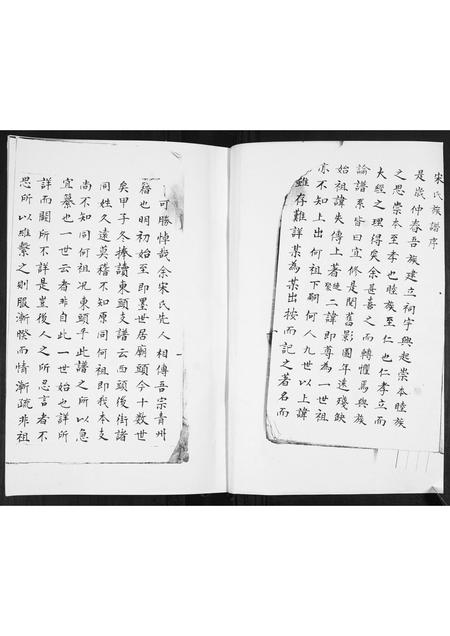 宋氏族譜序
是歲仲春吾族建立祠宇興起崇本睦族
之思崇本至孝也睦族至仁也仁孝立而
大經之理得矣余甚喜之而轉懼焉與族
諭譜系皆曰宜修是閱舊影圖年遠殘缺
始祖諱失傳上著 二諱即尊為一世祖
亦不知上出何祖下嗣何人九世以上諱
雖存難詳某為某出按而記之著名而
可勝悼哉余宋氏先人相傳吾宗青州
籍也明初始至即墨世居廟頭今十數世
矣甲子冬捧讀東頭支譜云西頭後街諸
同姓久遠莫稽不知原同何祖即我本支
尚不知同何祖况東頭乎此譜之所以急
宜纂也一世云者非自此一世始也詳所
詳而闕所不詳是豈後人之所忍言者不
忍所以維繫之則服漸暌而情漸疏非祖